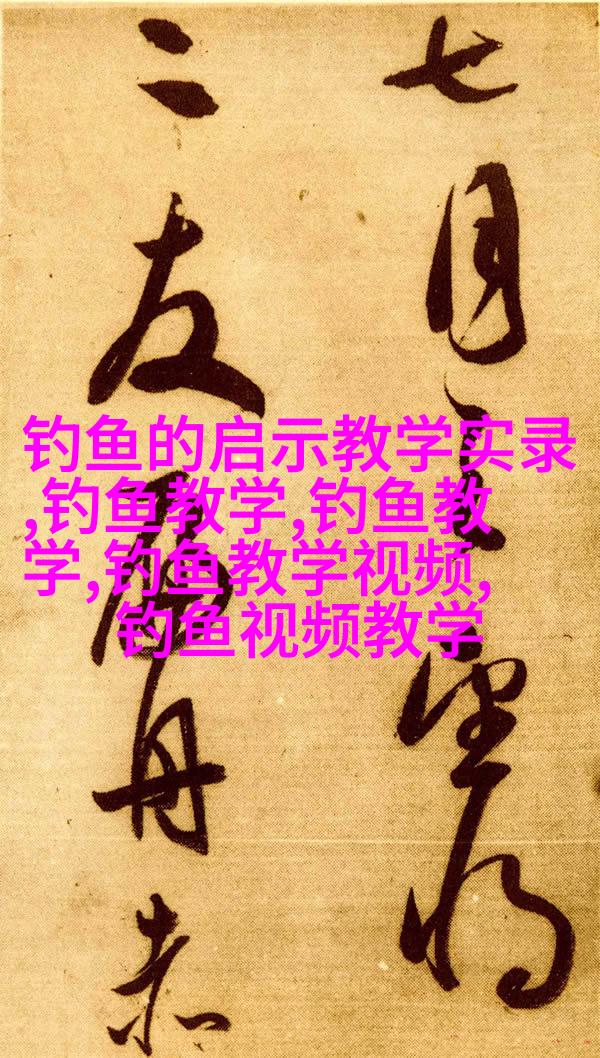 七月望将
二友舟赤
钓鱼的启示教学实录
,钓鱼教学,钓鱼教
学,钓鱼教学视频,
钓鱼视频教学